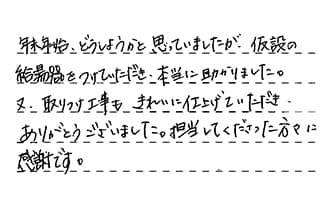 年末年始、どうしようかと思っていましたが、仮設の
給湯器をつけていただき、本当に助かりました。
又、取りつけ工事も きれいに仕上げていただき、
ありがとうございました。担当してくださった方々に
感謝です。